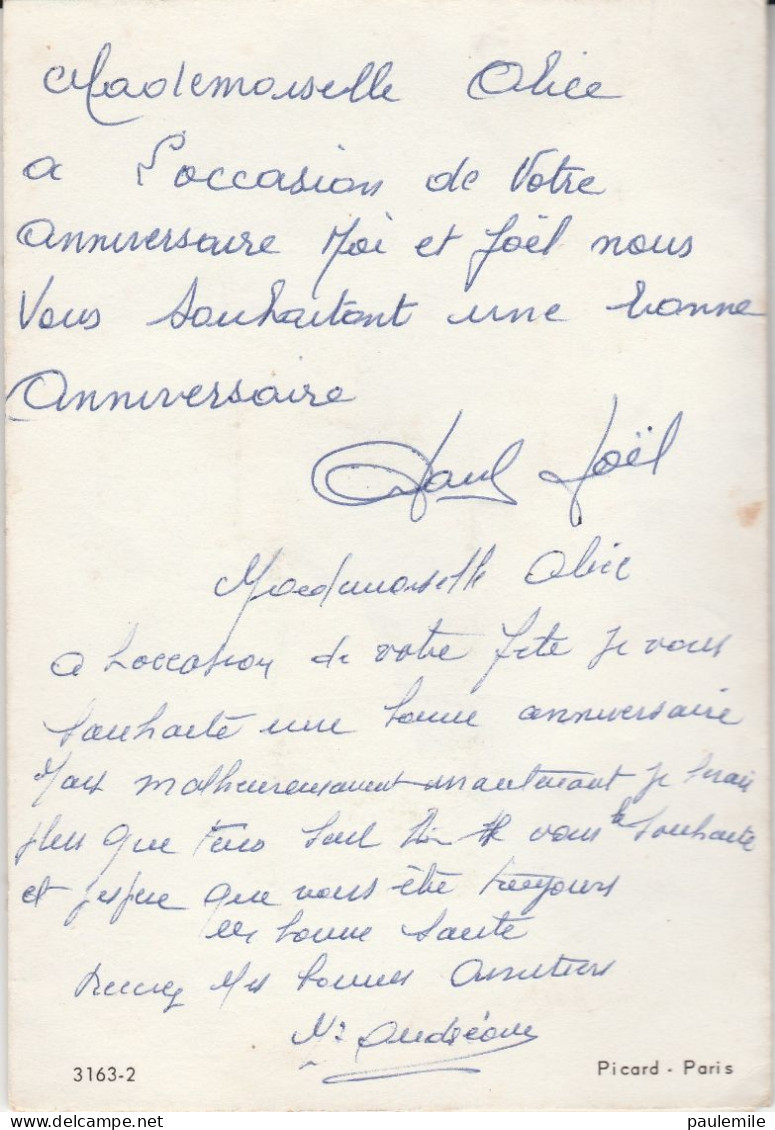 Mademoiselle Alice
a l'occasion de Votre
anniversaire Moi et Joël nous
Vous souhaitont une bonne
Anniversaire
Paul Joël
Mademoiselle Alice
a l'occasion de votre fete je vous
souhaite une bonne anniversaire
Mais malheureusement maintenant je serai
plus que tous seul le vous souhaite
et jespere que vous ête toujours
en bonne santé
Recevez Mes bonnes Amitiers
Mr
3163-2
Picard - Paris
paulemile